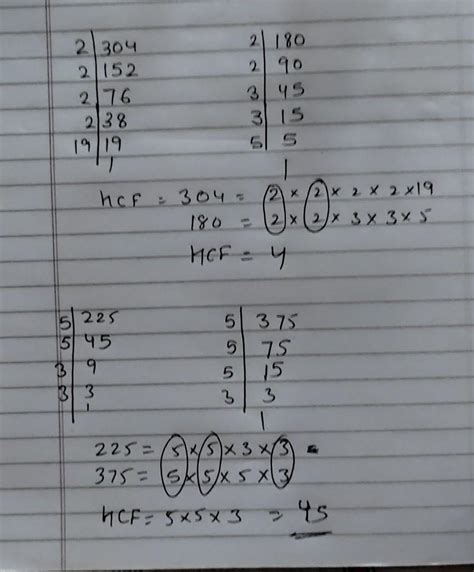 2 | 304    2 | 180
2 | 152    2 | 90
2 | 76    3 | 45
2 | 38    3 | 15
19 | 19    5 | 5
1    1
HCF = 304 = 2 × 2 × 2 × 2 × 19
180 = 2 × 2 × 3 × 3 × 5
HCF = 4
5 | 225    5 | 375
5 | 45    5 | 75
3 | 9    5 | 15
3 | 3    3 | 3
1    1
225 = 5 × 5 × 3 × 3
375 = 5 × 5 × 5 × 3
HCF = 5 × 5 × 3 = 45